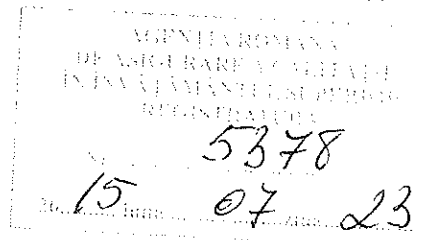 AGENȚIA ROMÂNĂ
DE ASIGURARE A CALITĂȚII
ÎN ÎNVĂȚĂMÂNTUL SUPERIOR
REGISTRATURA
Nr. 5378
20 15 luna 07 ziua 23